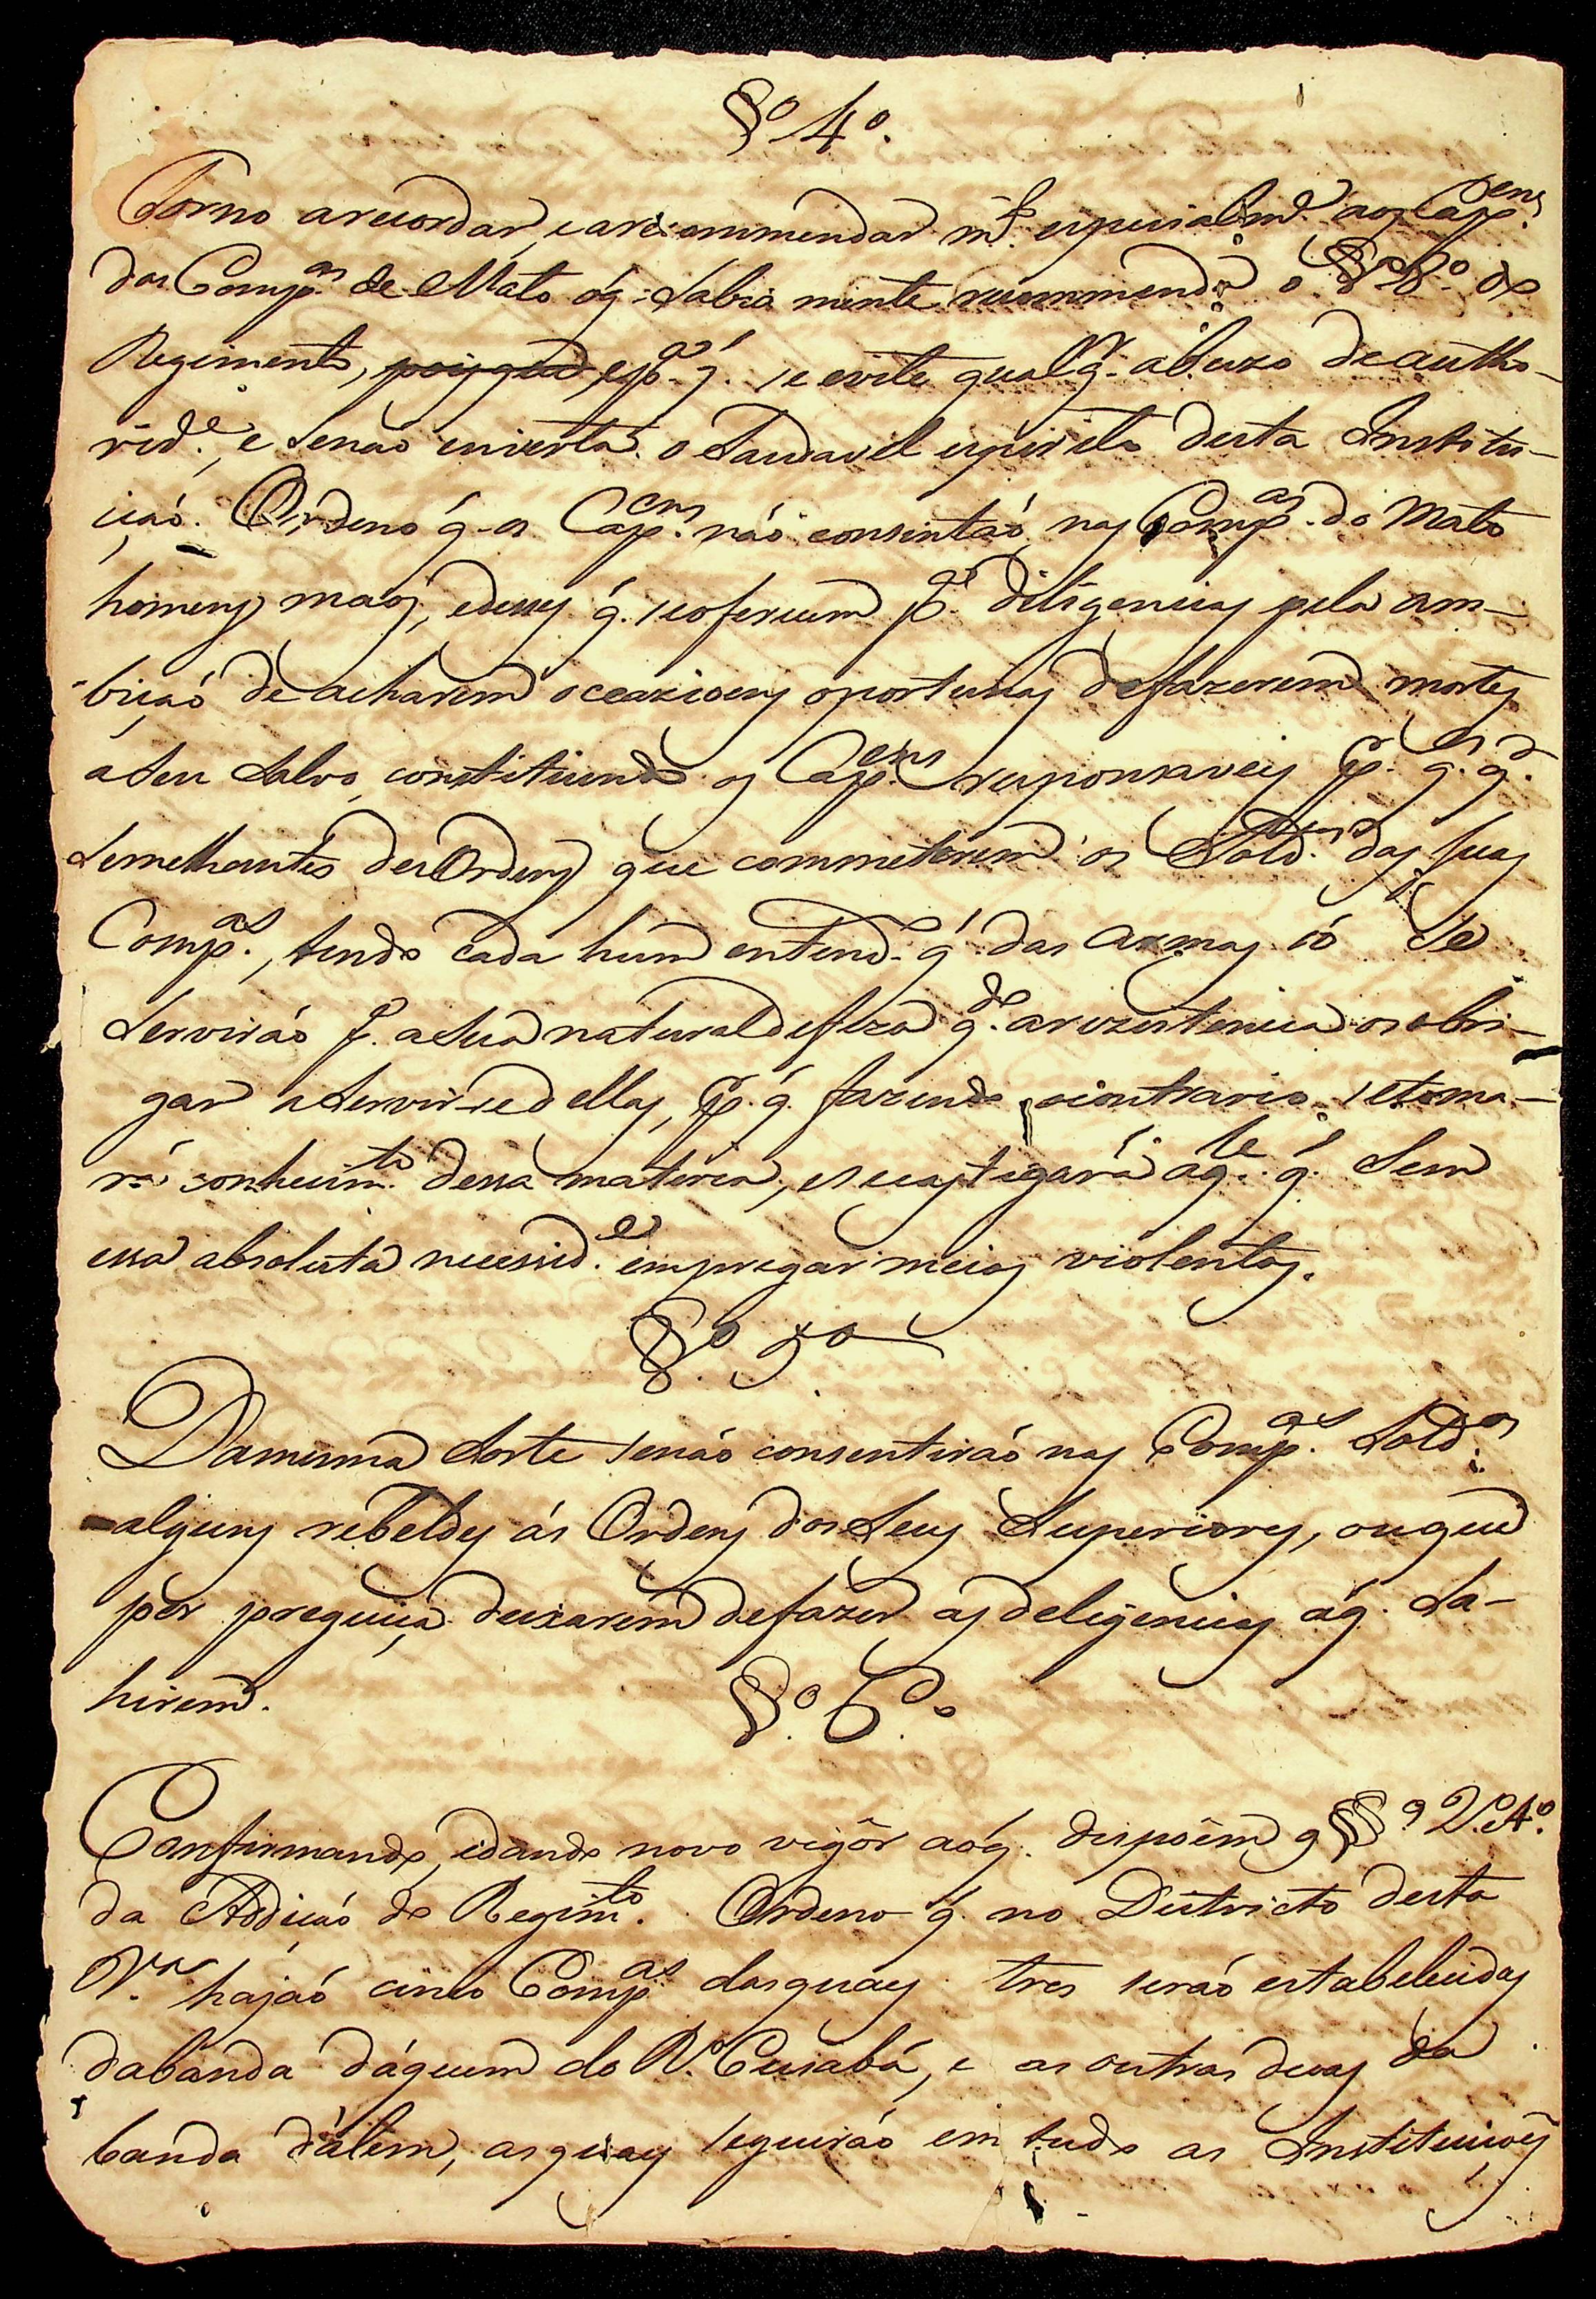 §º 4º.
Torno a recordar, e a recommendar m.to especialm.e aos Cap.ens
das Comp.as de Mato o q̃ sabia mente recommenda o § 8º do
Regimento, pois que e p.a q̃. se evite qualq.r abuzo de autho-
rid.e, e se naõ inverta o saudavel espirito desta Institu-
içaõ. Ordeno q̃ os Cap.ens não consintaõ nas Comp.as do Mato
homens maos, e desses q̃. se oferecem p.a diligencias pela am-
biçaõ de acharem occazioens oportunas de fazerem mortes
a seu salvo, constituindo os Cap.ens responsaveis p.r q.es q.r
semelhantes desOrdens que commeterem os Sold.os das suas
Comp.as, tendo cada hum entend.o q̃ das armas só se
serviráõ p.a a sua natural defeza q.do a rezistencia os obri-
gar a servir-se dellas, p.r q̃. fazendo o contrario, se toma-
rá conhecim.to dessa materia, e se castigará aq.le q̃. sem
essa absoluta necessid.e empregar meios violentos.
§º. 5º
Da mesma sorte se naõ consentiráõ nas Comp.as Sold.os
alguns rebeldes ás Ordens dos seus Superiores, ou que
por preguiça deixarem de fazer as deligencias a q̃. sa-
hirem.
§º. 6º.
Confirmando, e dando novo vigôr ao q̃. dispôem o §§º 2º. 4º.
da Adiçaõ do Regim.to. Ordeno q̃. no Districto desta
V.a hajaõ cinco Comp.as das quaes tres seráõ estabelecidas
da banda dáquem do R.o Cuiabá, e as outras duas da
banda d'álem, as quaes seguiráõ em tudo as Instituiçoẽs